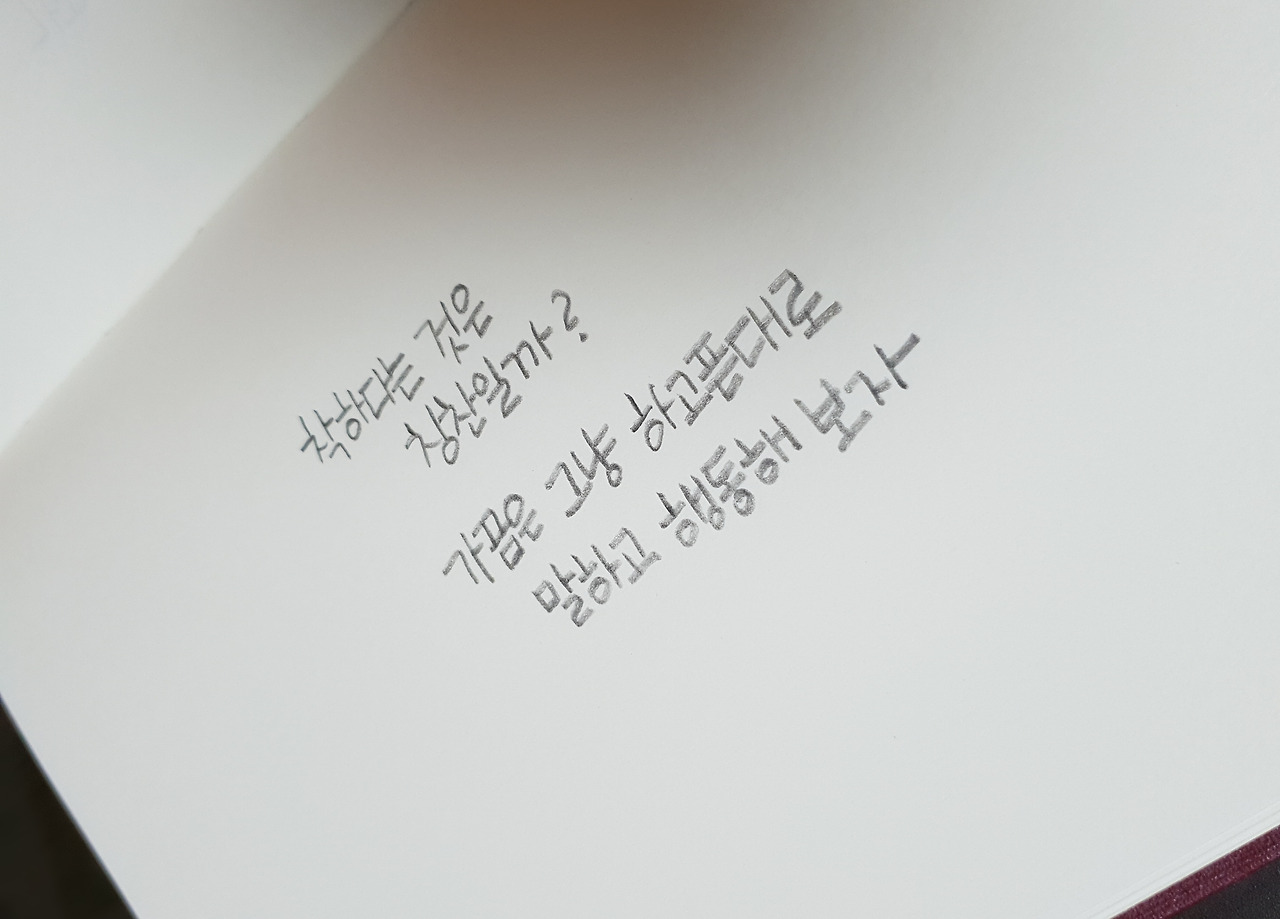 착하다는 것은
칭찬일까?
가끔은 그냥 하고픈대로
말하고 행동해 보자